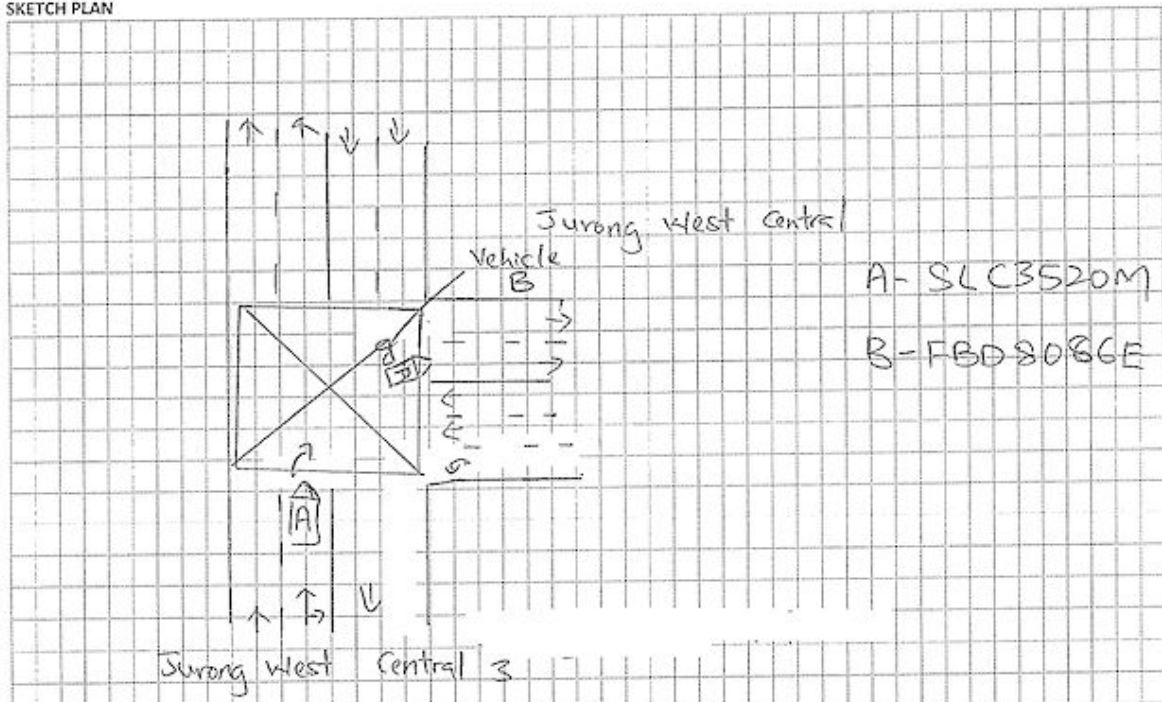 SKETCH PLAN
Jurong West Central
Vehicle
B
A- SLC3520M
B-FBD8086E
A
Jurong West Central 3